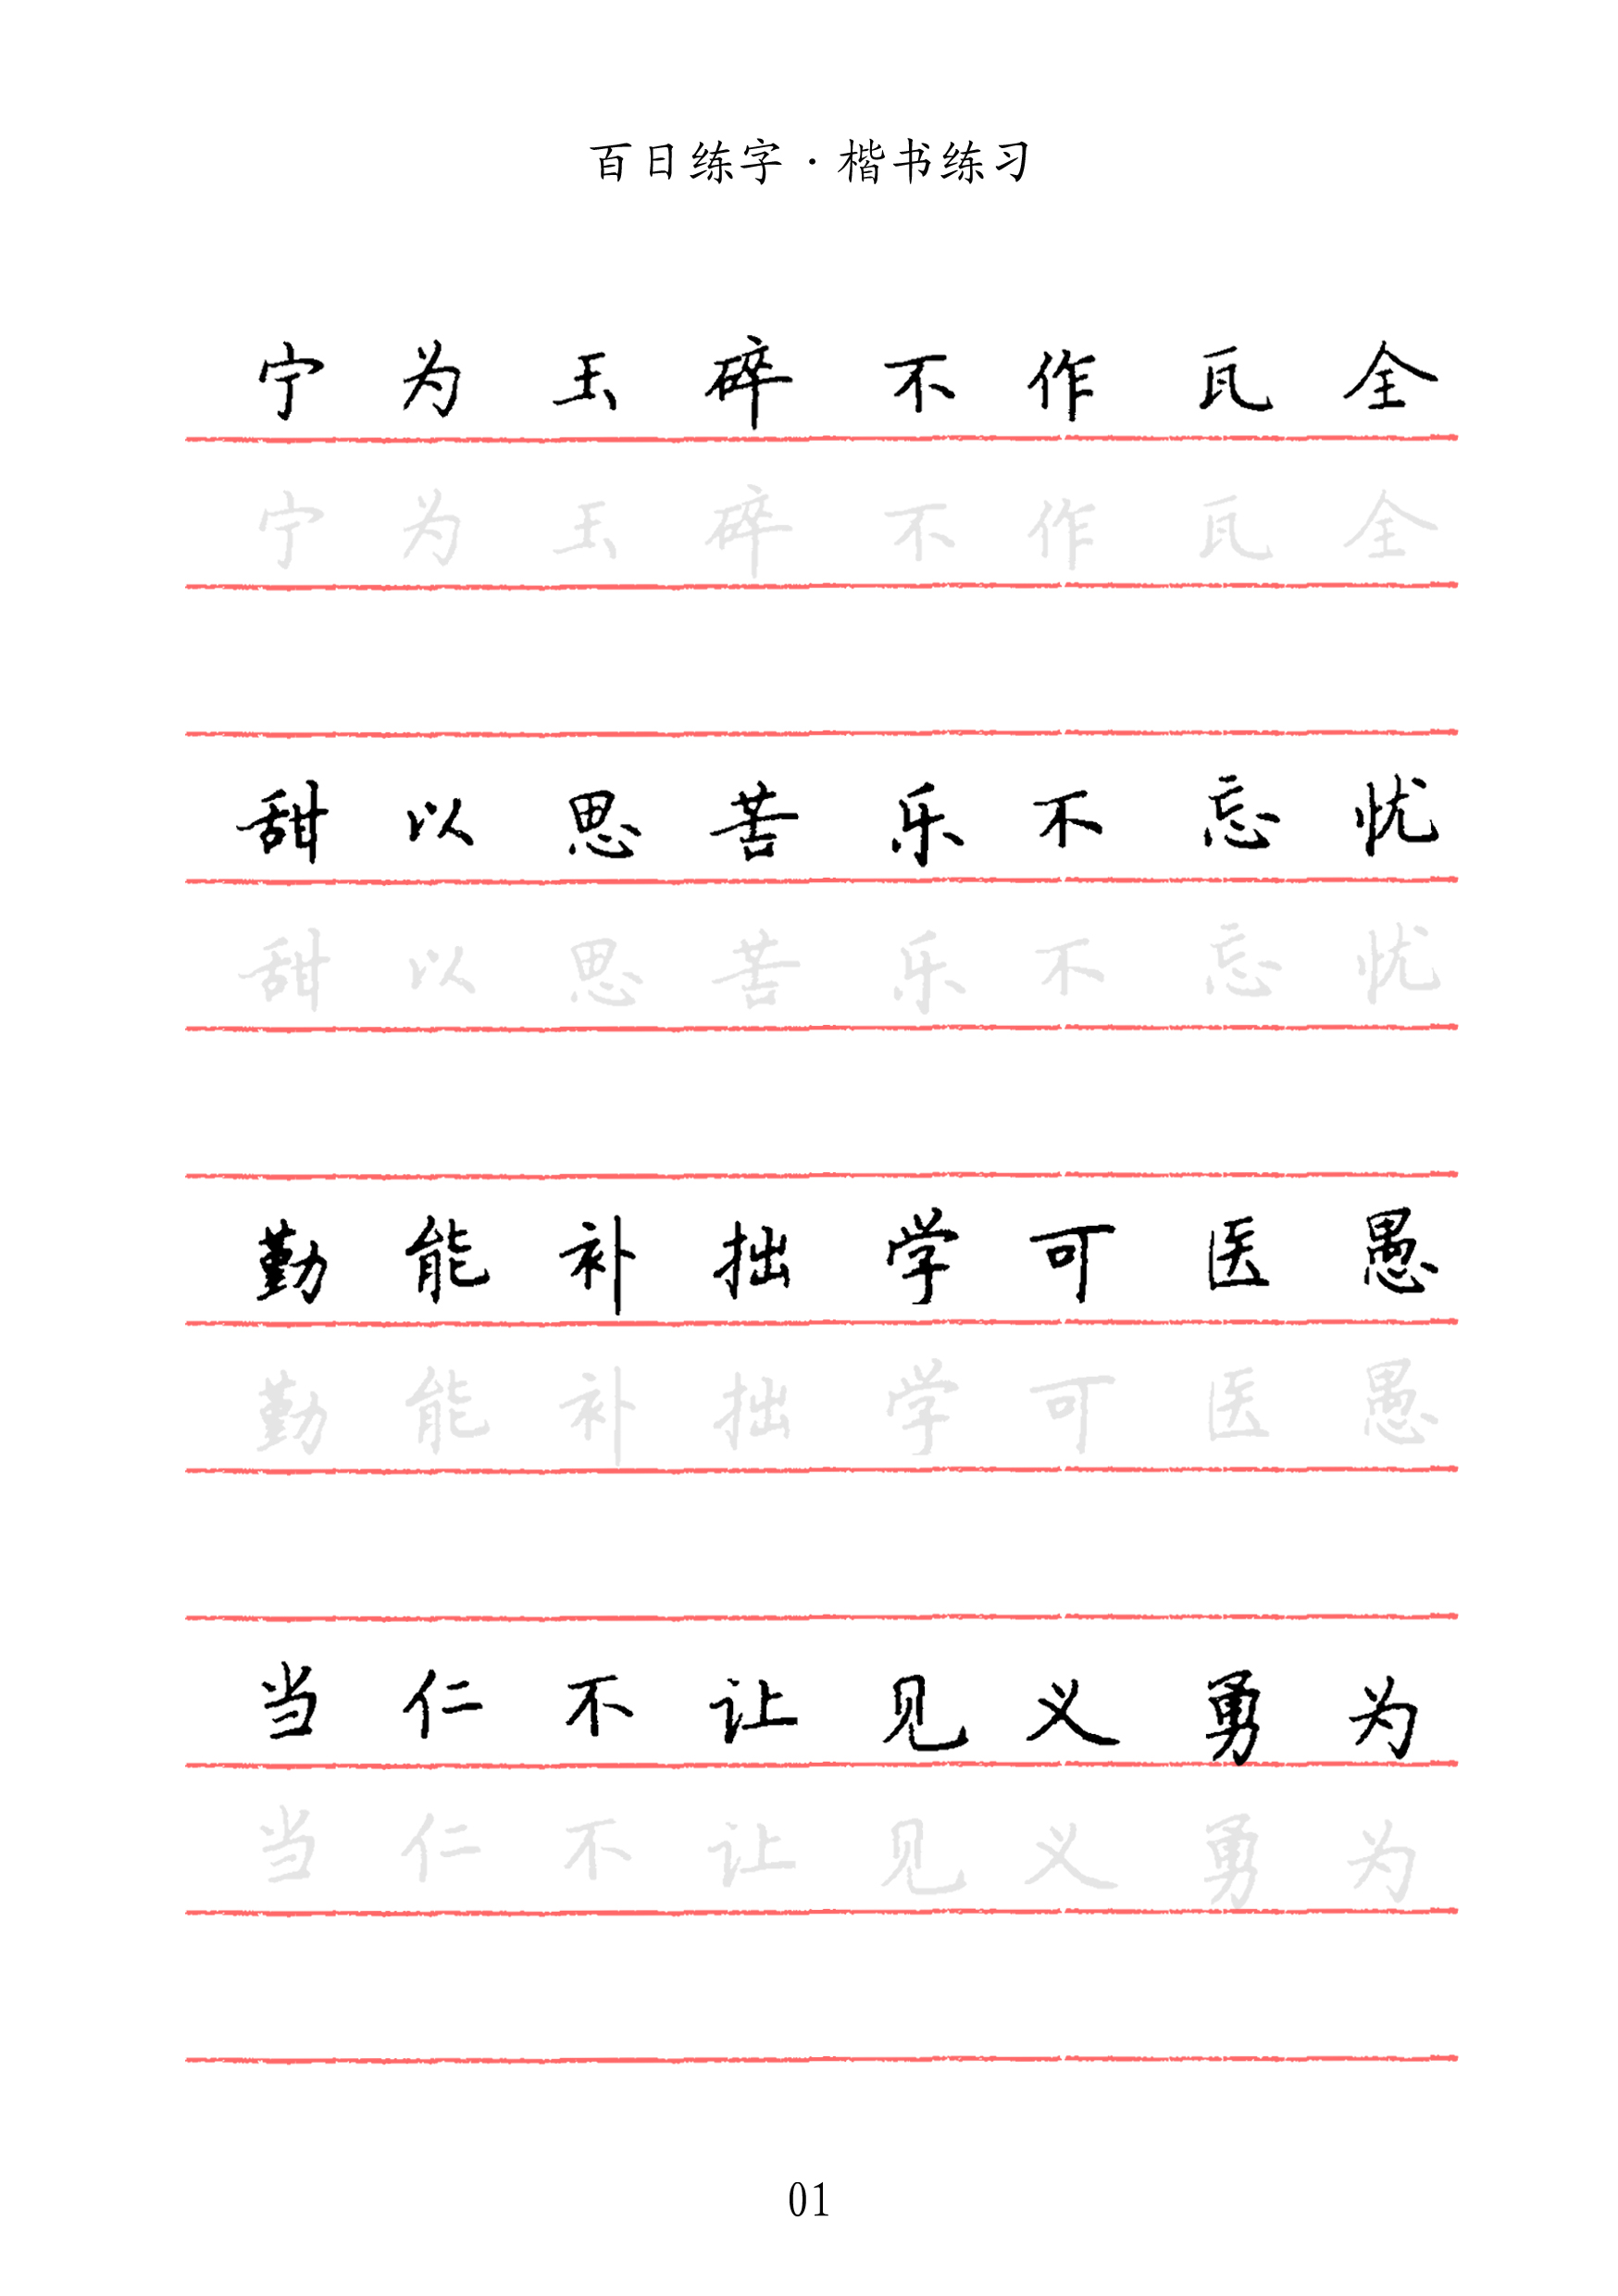 百日练字·楷书练习
宁为玉碎不作瓦全
宁为玉碎不作瓦全
甜以思苦乐不忘忧
甜以思苦乐不忘忧
勤能补拙学可医愚
勤能补拙学可医愚
当仁不让见义勇为
当仁不让见义勇为
01